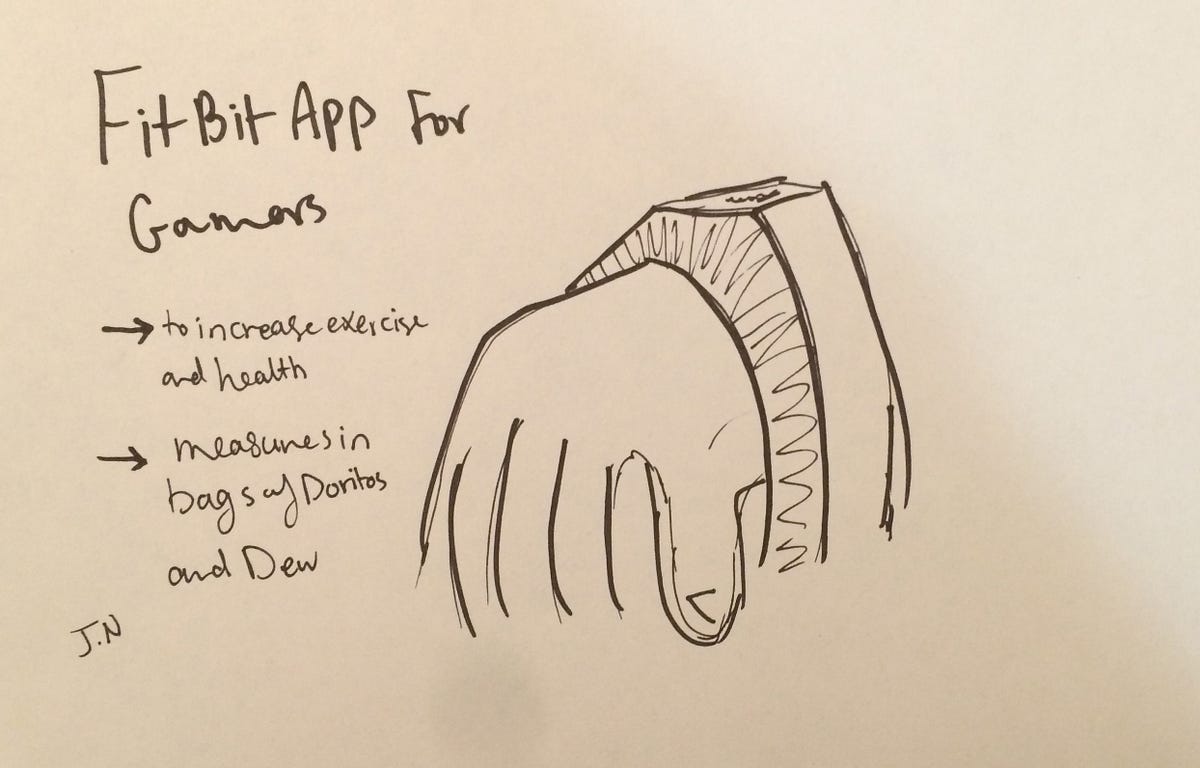 FitBit App For
Gamers
→ to increase exercise
and health
→ measures in
bags of Doritos
and Dew
J.N